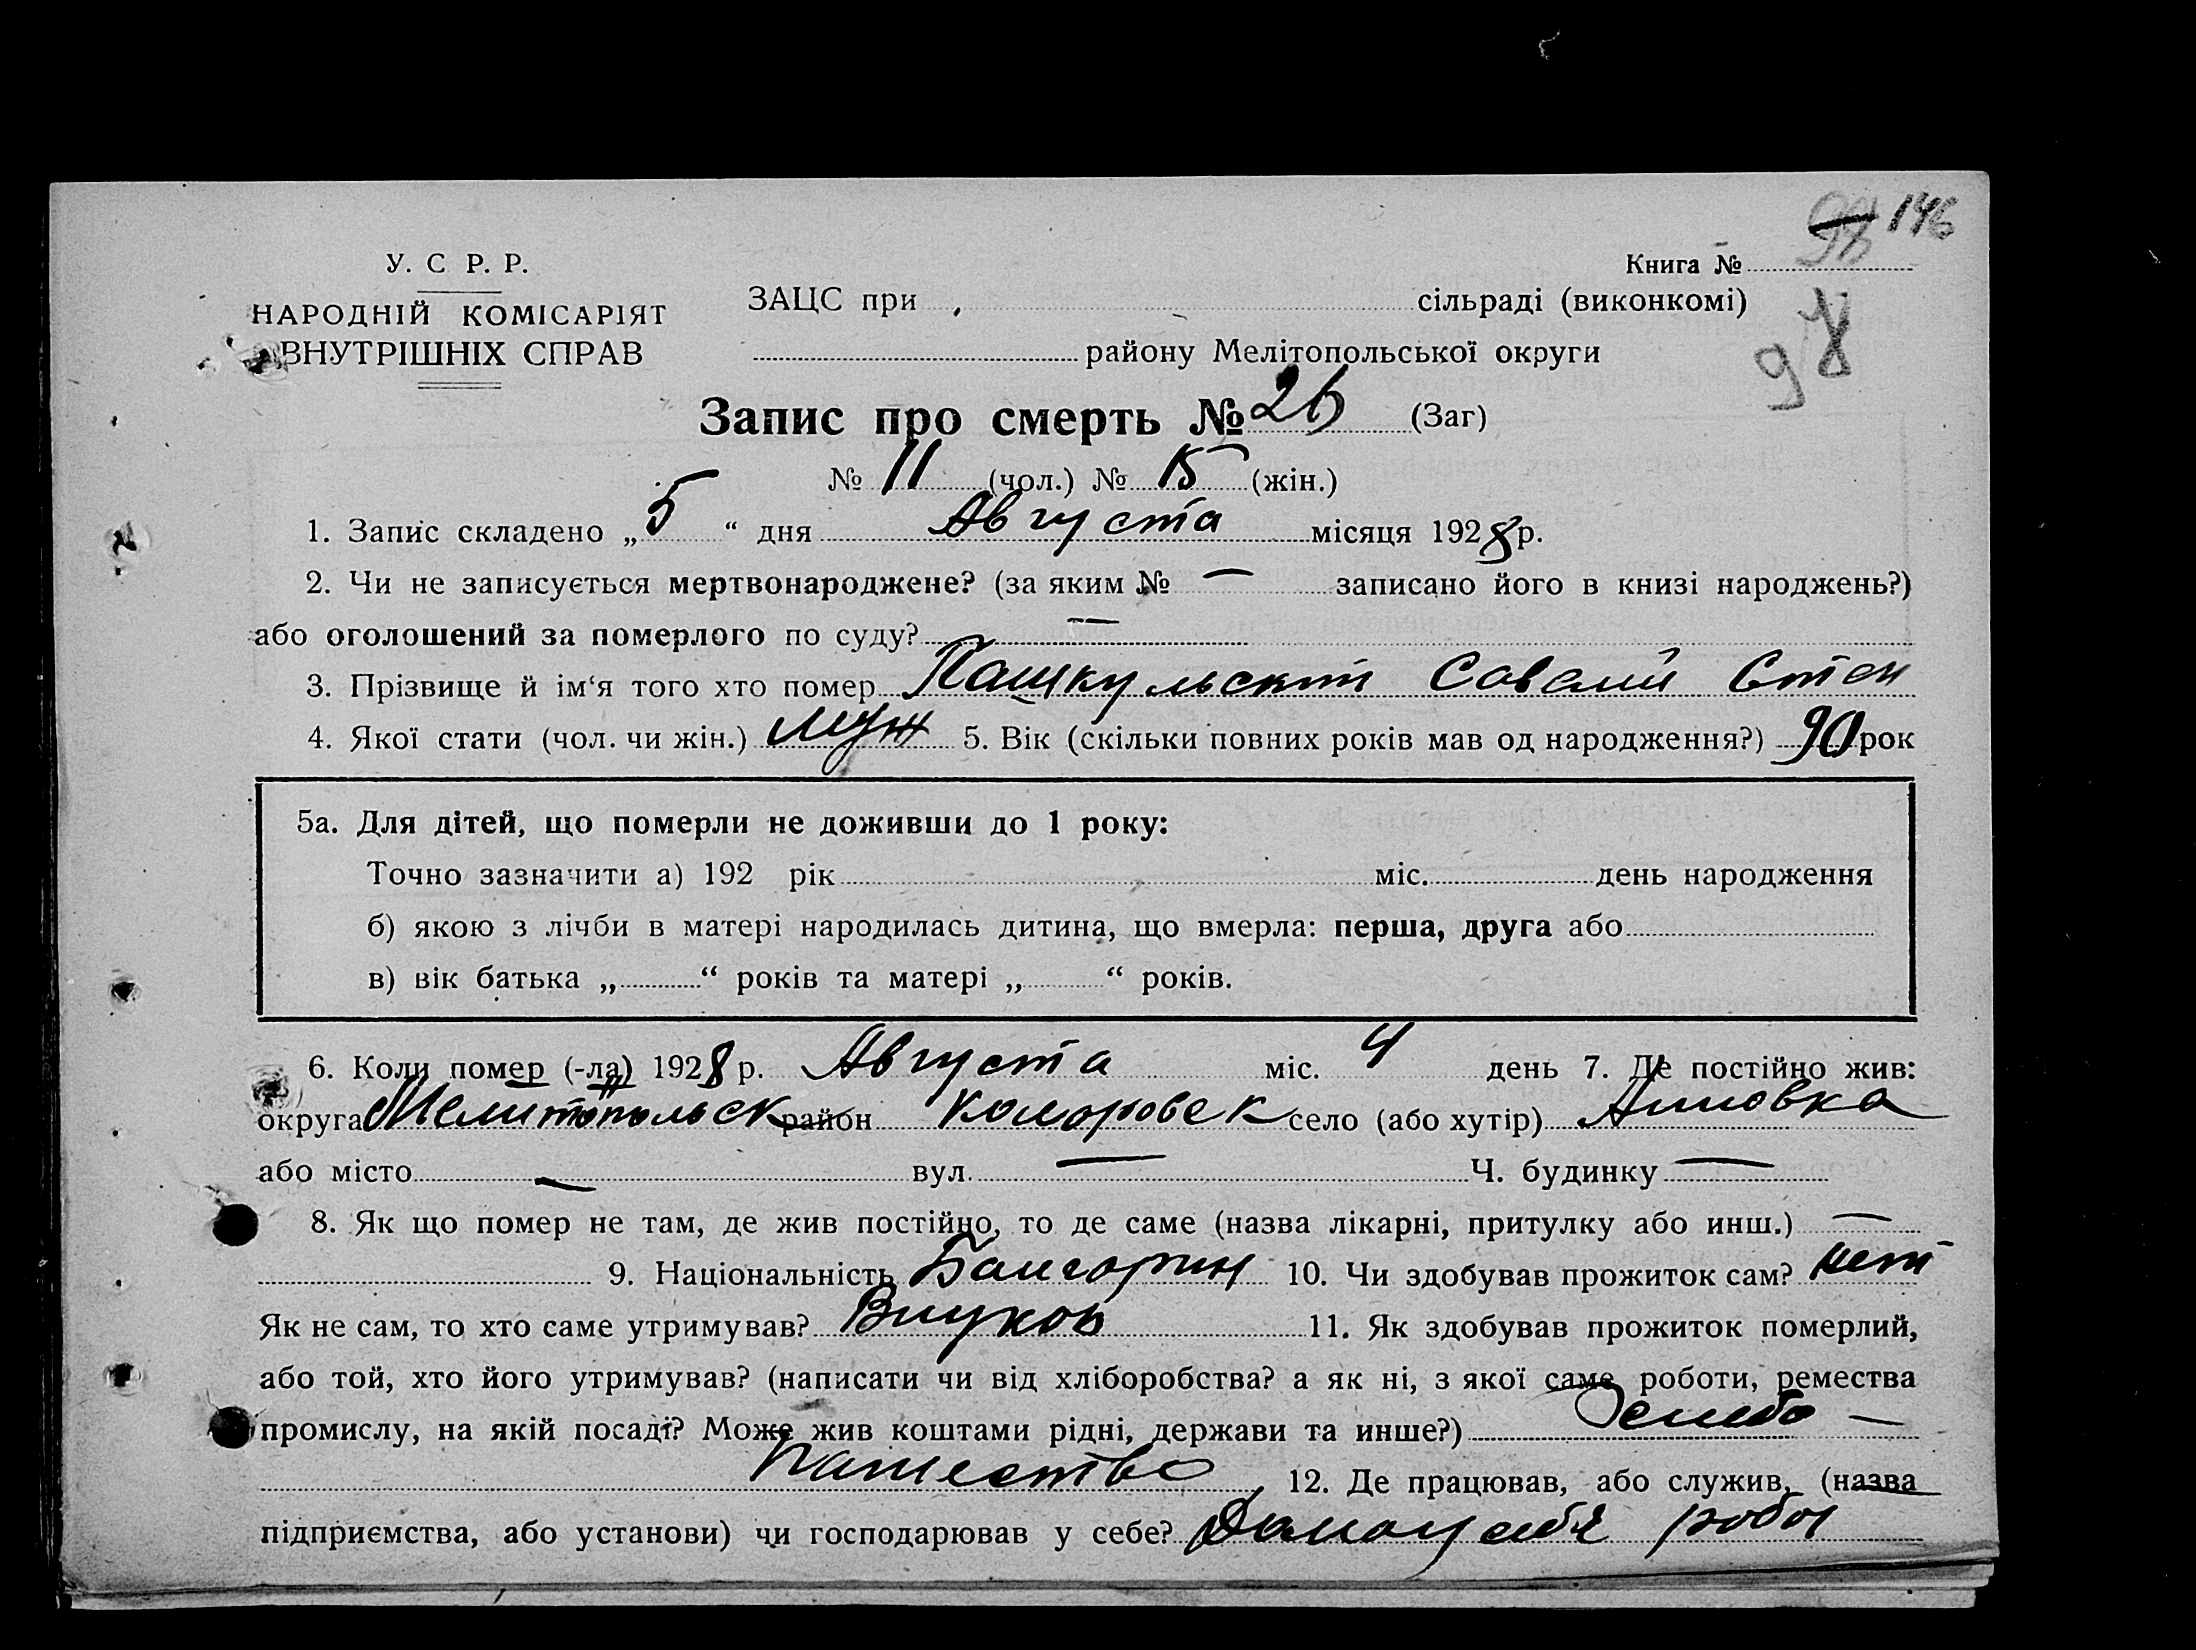 98 146
У. С. Р. Р.
Книга №
НАРОДНІЙ КОМІСАРІЯТ
ВНУТРІШНІХ СПРАВ
ЗАЦС при сільраді (виконкомі)
98
району Мелітопольської округи
Запис про смерть № 26 (Заг)
№ 11 (чол.) № 15 (жін.)
1. Запис складено „ 5 “ дня Августа місяця 1928 р.
2. Чи не записується мертвонароджене? (за яким № — записано його в книзі народжень?)
або оголошений за померлого по суду? —
3. Прізвище й ім‘я того хто помер Пашкульский Савелий Степ
4. Якої стати (чол. чи жін.) муж 5. Вік (скільки повних років мав од народження?) 90 рок
5а. Для дітей, що померли не доживши до 1 року:
Точно зазначити а) 192 рік міс. день народження
б) якою з лічби в матері народилась дитина, що вмерла: перша, друга або
в) вік батька „ “ років та матері „ “ років.
6. Коли помер (-ла) 1928 р. Августа міс. 4 день 7. Де постійно жив:
округа Мелитопольск район село (або хутір) Анновка
або місто — вул. — Ч. будинку —
8. Як що помер не там, де жив постійно, то де саме (назва лікарні, притулку або инш.) —
9. Національність Балгорин 10. Чи здобував прожиток сам? нет
Як не сам, то хто саме утримував? Внуков 11. Як здобував прожиток померлий,
або той, хто його утримував? (написати чи від хліборобства? а як ні, з якої саме роботи, ремества
промислу, на якій посаді? Може жив коштами рідні, держави та инше?) Землео —
пашество 12. Де працював, або служив, (назва
підприємства, або установи) чи господарював у себе? Дома у себя робот